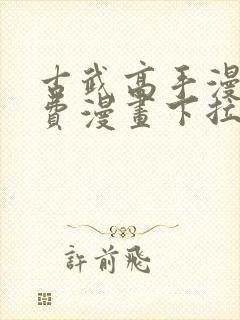 古武高手漫
费漫畫下拉
許前飛